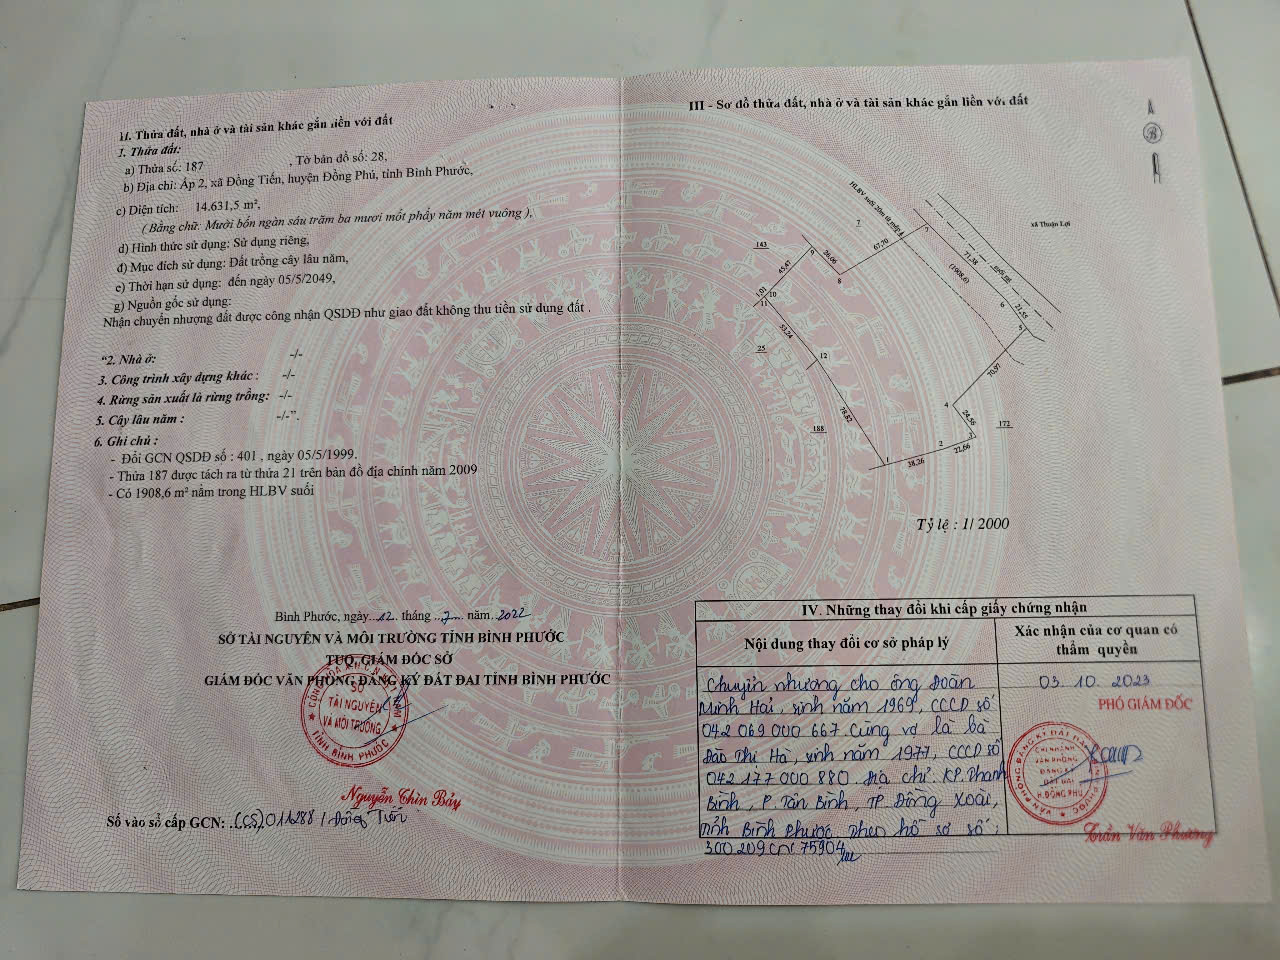 II. Thửa đất, nhà ở và tài sản khác gắn liền với đất
1. Thửa đất:
a) Thửa số: 187 , Tờ bản đồ số: 28,
b) Địa chỉ: Ấp 2, xã Đồng Tiến, huyện Đồng Phú, tỉnh Bình Phước,
c) Diện tích: 14.631,5 m²,
( Bằng chữ: Mười bốn ngàn sáu trăm ba mươi mốt phẩy năm mét vuông ),
d) Hình thức sử dụng: Sử dụng riêng,
đ) Mục đích sử dụng: Đất trồng cây lâu năm,
e) Thời hạn sử dụng: đến ngày 05/5/2049,
g) Nguồn gốc sử dụng:
Nhận chuyển nhượng đất được công nhận QSDĐ như giao đất không thu tiền sử dụng đất .
“2. Nhà ở: -/-
3. Công trình xây dựng khác : -/-
4. Rừng sản xuất là rừng trồng: -/-
5. Cây lâu năm : -/-”.
6. Ghi chú :
- Đổi GCN QSDĐ số : 401 , ngày 05/5/1999.
- Thửa 187 được tách ra từ thửa 21 trên bản đồ địa chính năm 2009
- Có 1908,6 m² nằm trong HLBV suối
Bình Phước, ngày 12 tháng 7 năm 2022
SỞ TÀI NGUYÊN VÀ MÔI TRƯỜNG TỈNH BÌNH PHƯỚC
TUQ. GIÁM ĐỐC SỞ
GIÁM ĐỐC VĂN PHÒNG ĐĂNG KÝ ĐẤT ĐAI TỈNH BÌNH PHƯỚC
SỞ
TÀI NGUYÊN
VÀ MÔI TRƯỜNG
TỈNH BÌNH PHƯỚC
Nguyễn Chín Bảy
Số vào sổ cấp GCN: (CS) / Đồng Tiến
III - Sơ đồ thửa đất, nhà ở và tài sản khác gắn liền với đất
B
HLBV suối 20m từ mép
xã Thuận Lợi
7
143
9
26,06
67,70
7
71,38
suối
45,47
8
(1908,6)
6
21,55
1,01
10
11
5
53,24
25
12
70,97
78,82
4
24,56
172
188
3
2
22,66
1
38,26
Tỷ lệ : 1/ 2000
IV. Những thay đổi khi cấp giấy chứng nhận
Nội dung thay đổi cơ sở pháp lý
Xác nhận của cơ quan có
thẩm quyền
Chuyển nhượng cho ông Đoàn
Minh Hải, sinh năm 1969, CCCD số
042 069 000 667 Cùng vợ là bà
Đào Thị Hà, sinh năm 1977, CCCD số
042 177 000 880. Địa chỉ: KP. Thanh
Bình, P. Tân Bình, TP. Đồng Xoài,
tỉnh Bình Phước theo hồ sơ số:
300 209 CN 75904
03. 10. 2023
PHÓ GIÁM ĐỐC
CHI NHÁNH
VĂN PHÒNG
ĐĂNG KÝ
ĐẤT ĐAI
H. ĐỒNG PHÚ
Trần Văn Phương